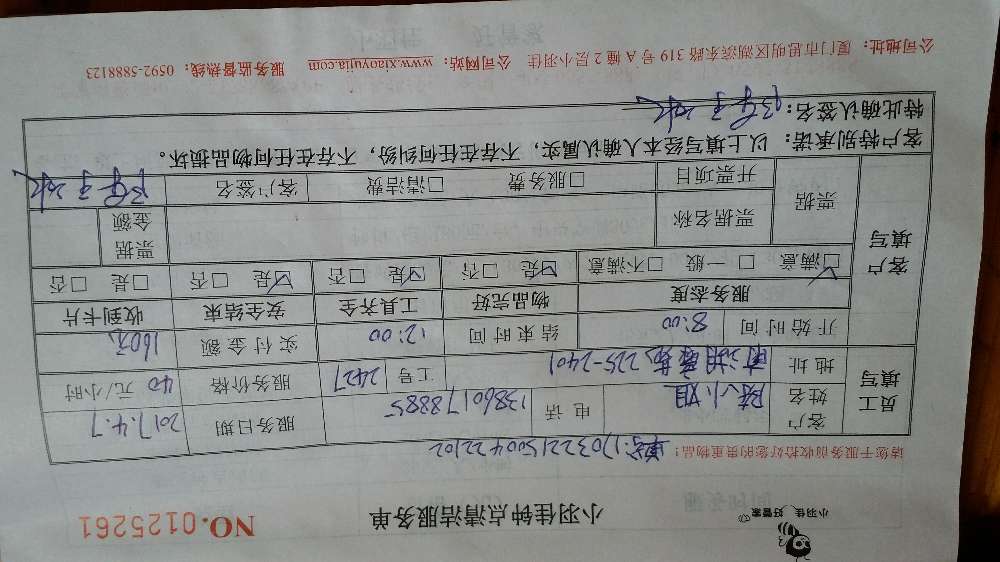 小羽佳 好管家
小羽佳钟点清洁服务单
NO.0125261
请您于服务前收拾好您的贵重物品!
单号:1703221500422102
员工填写 客户姓名 陈小姐 电话 13860178885 服务日期 2017.4.7
地址 225-2401 工号 2427 服务价格 40 元/小时
开始时间 8:00 结束时间 12:00 实付金额 160元
客户填写 服务态度 物品完好 工具齐全 安全结束 收到卡片
☑满意 □一般 □不满意 ☑是 □否 ☑是 □否 ☑是 □否 □是 □否
票据 票据名称 票据金额
开票项目 □服务费 □清洁费 客户签名
客户特别承诺:以上填写经本人确认属实,不存在任何纠纷,不存在任何物品损坏。
特此确认签名:
公司地址:厦门市思明区湖滨东路319号A幢2层小羽佳 公司网站:www.xiaoyujia.com 服务监督热线:0592-5888123